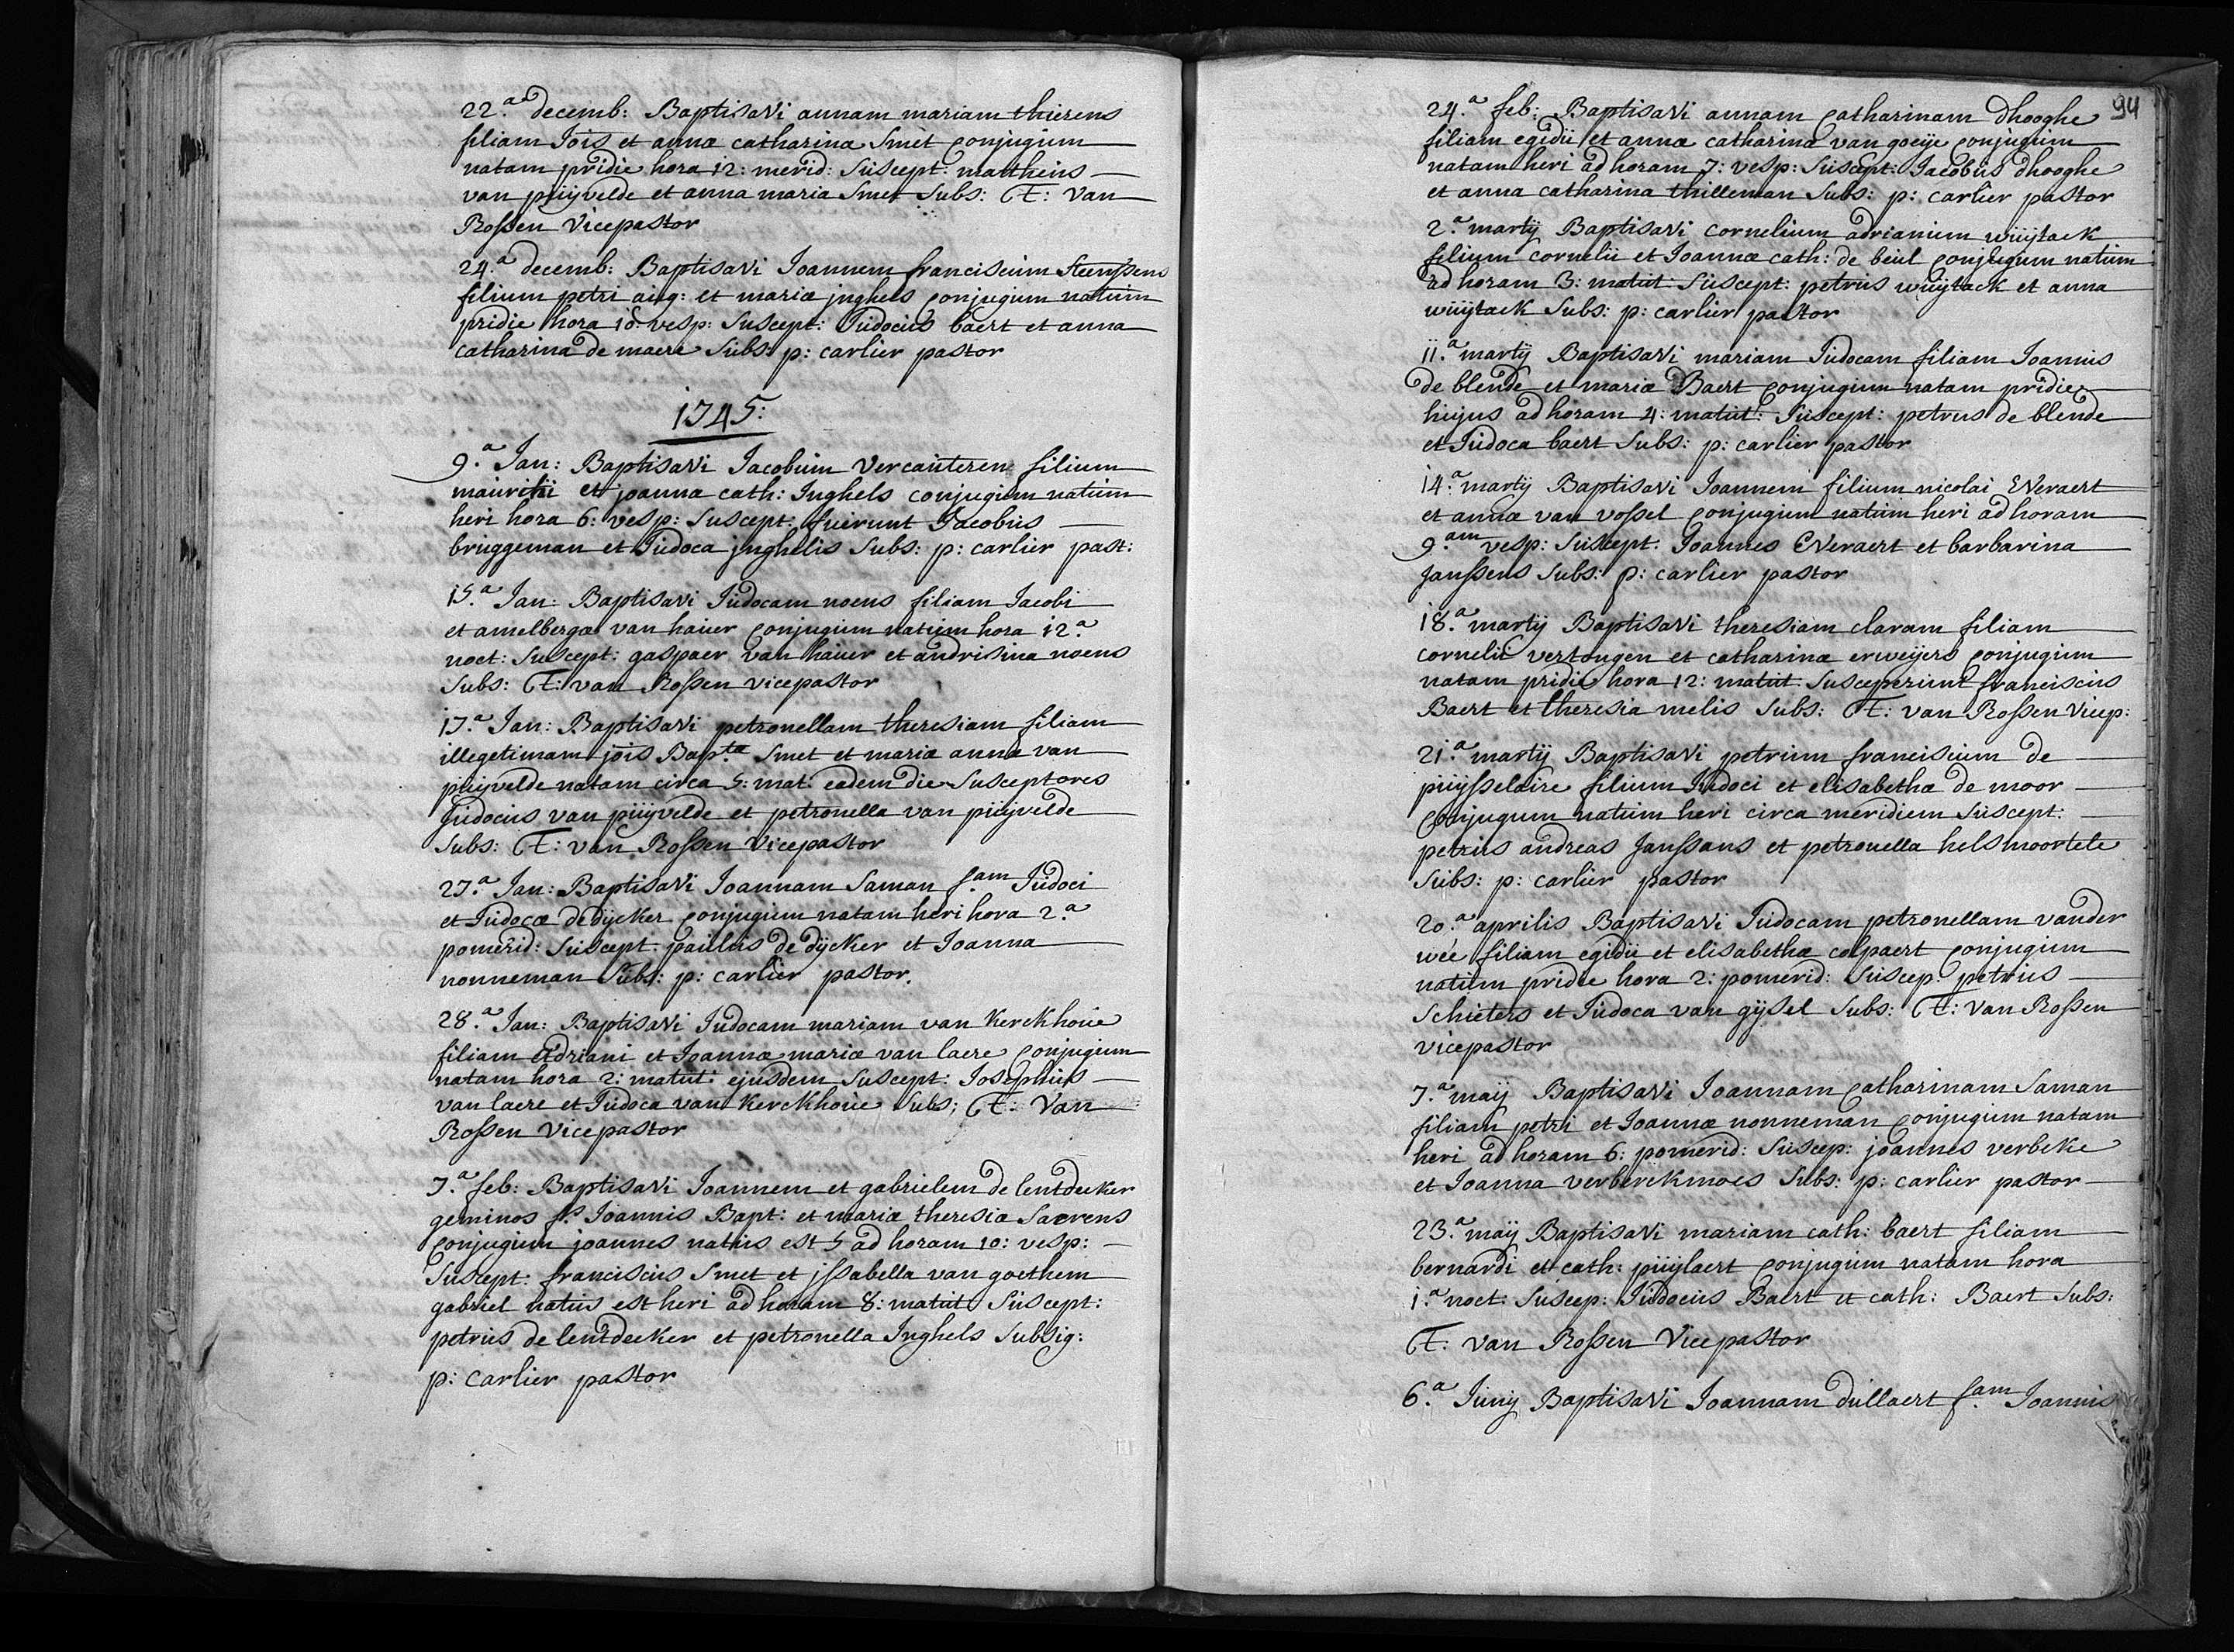 22.a decemb: Baptisavi annam mariam thierens
filiam Jois et annæ catharina Smet conjugum
natam pridie hora 12: merid: Suscept: mattheus
van puÿvelde et anna maria Smet Subs: F: Van
Rossen Vicepastor
24.a decemb: Baptisavi Joannem franciscum Steenssens
filium petri aug: et mariæ jnghels conjugum natum
pridie hora 10: vesp: Suscept: Judocus baert et anna
catharina de maere Subs: p: carlier pastor
1745:
9.a Jan: Baptisavi Jacobum Vercauteren filium
mauritii et joannæ cath: Inghels conjugum natum
heri hora 6: vesp: Suscept: fuerunt Jacobus
bruggeman et Judoca jnghelis Subs: p: carlier past:
15.a Jan: Baptisavi Judocam noens filiam Jacobi
et amelbergæ van hauer conjugum natum hora 12.a
noct: Suscept: gaspaer van hauer et andrisina noens
Subs: F: van Rossen vicepastor
17.a Jan: Baptisavi petronellam theresiam filiam
illegetimam jois Bap.tæ Smet et mariæ annæ van
puÿvelde natam circa 5: mat: eadem die Susceptores
Judocus van puÿvelde et petronella van puÿvelde
Subs: F: van Rossen Vicepastor
27.a Jan: Baptisavi Joannam Saman f.am Judoci
et Judocæ de dÿcker conjugum natam heri hora 2.a
pomerid: Suscept: paulus de dÿcker et Joanna
nonneman Subs: p: carlier pastor.
28.a Jan: Baptisavi Judocam mariam van Kerckhoue
filiam adriani et Joannæ mariæ van laere conjugum
natam hora 2: matut: ejusdem Suscept: Josephus
van laere et Judoca van Kerckhoue Subs: F: Van
Rossen Vicepastor
7.a feb: Baptisavi Joannem et gabrielem de lentdecker
geminos f.s Joannis Bapt: et mariæ theresiæ Saerens
conjugum joannes natus est 5 ad horam 10: vesp:
Suscept: franciscus Smet et jssabella van goethem
gabriel natus est heri ad horam 8: matut Suscept:
petrus de lentdecker et petronella Inghels Subsig:
p: carlier pastor
94
24.a feb: Baptisavi annam catharinam dhooghe
filiam egidii et annæ catharinæ van goeije conjugum
natam heri ad horam 7: vesp: Suscept: Jacobus dhooghe
et anna catharina thilleman Subs: p: carlier pastor
2.a martÿ Baptisavi cornelium adrianum wuÿtack
filium cornelii et Joannæ cath: de beul conjugum natum
ad horam 3: matut: Suscept: petrus wuÿtack et anna
wuÿtack Subs: p: carlier pastor
11.a martÿ Baptisavi mariam Judocam filiam Joannis
de blende et mariæ Baert conjugum natam pridie
hujus ad horam 4: matut: Suscept: petrus de blende
et Judoca baert Subs: p: carlier pastor
14.a martÿ Baptisavi Joannem filium nicolai Everaert
et annæ van vossel conjugum natum heri ad horam
9.am vesp: Suscept: Joannes Everaert et barbarina
janssens Subs: p: carlier pastor
18.a martÿ Baptisavi theresiam claram filiam
cornelii vertongen et catharinæ erweijers conjugum
natam pridie hora 12: matut: Susceperunt franciscus
Baert et theresia melis Subs: F: van Rossen Vicep:
21.a martÿ Baptisavi petrum franciscum de
puÿsselaire filium Judoci et elisabethæ de moor
conjugum natum heri circa meridiem Suscept:
petrus andreas Janssans et petronella helsmoortele
Subs: p: carlier pastor
20.a aprilis Baptisavi Judocam petronellam vander
weé filiam egidii et elisabethæ colpaert conjugum
natum pridie hora 2: pomerid: Suscep: petrus
Schieters et Judoca van gÿsel Subs: F: Van Rossen
vicepastor
7.a maÿ Baptisavi Joannam catharinam Saman
filiam petri et Joannæ nonneman conjugum natam
heri ad horam 6: pomerid: Suscep: joannes verbeke
et Joanna verberckmoes Subs: p: carlier pastor
23.a maÿ Baptisavi mariam cath: baert filiam
bernardi et cath: puÿlaert conjugum natam hora
1.a noct: Suscep: Judocus Baert et cath: Baert Subs:
F: van Rossen Vicepastor
6.a Junÿ Baptisavi Joannam dullaert f.am Joannis